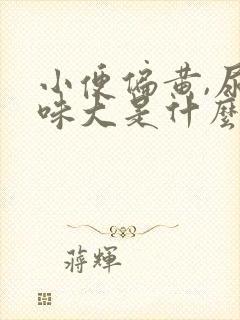 小便偏黄,尿
味大是什麼
蒋輝